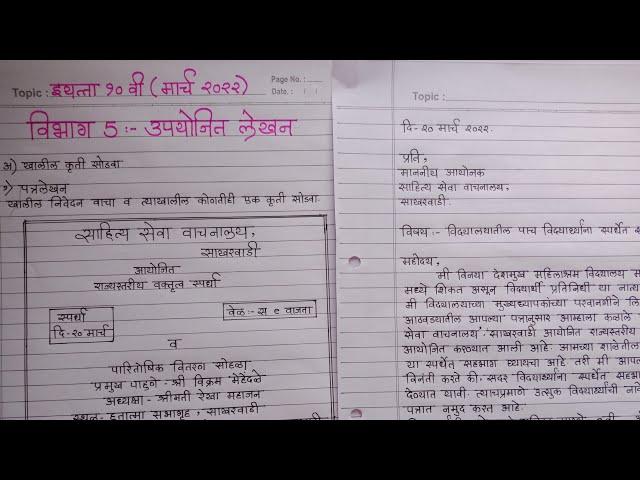 Topic : इयत्ता १० वी ( मार्च २०२२)
Page No. :
Date. : / /
विभाग 5 :- उपयोजित लेखन
अ) खालील कृती सोडवा
१) पत्रलेखन
खालील निवेदन वाचा व त्याखालील कोणतीही एक कृती सोडवा.
साहित्य सेवा वाचनालय,
साखरवाडी
आयोजित
राज्यस्तरीय वक्तृत्व स्पर्धा
स्पर्धा
दि-२० मार्च
वेळ:- स ९ वाजता
व
पारितोषिक वितरण सोहळा
प्रमुख पाहुणे - श्री विक्रम मेहेंदळे
अध्यक्षा - श्रीमती रेखा महाजन
स्थळ- हुतात्मा सभागृह, साखरवाडी
Topic :
दि- २० मार्च २०२२.
प्रति,
माननीय आयोजक
साहित्य सेवा वाचनालय,
साखरवाडी.
विषय :- विद्यालयातील पाच विद्यार्थ्यांना स्पर्धेत
महोदय,
मी विनया देशमुख महिलाश्रम विद्यालय
मध्ये शिकत असून विद्यार्थी प्रतिनिधी या
मी विद्यालयाच्या मुख्यध्यापकांच्या परवानगीने
आठवड्यातील आपल्या पत्रानुसार आम्हाला कळाले
सेवा वाचनालय, साखरवाडी आयोजित राज्यस्तरीय
आयोजित करण्यात आली आहे. आमच्या शाळेतील
या स्पर्धेत सहभाग घ्यायचा आहे. तरी मी
विनंती करते की, सदर विद्यार्थ्यांना स्पर्धेत
देण्यात यावी. त्याचप्रमाणे उत्सुक विद्यार्थ्यांची
पत्रात नमूद करत आहे.